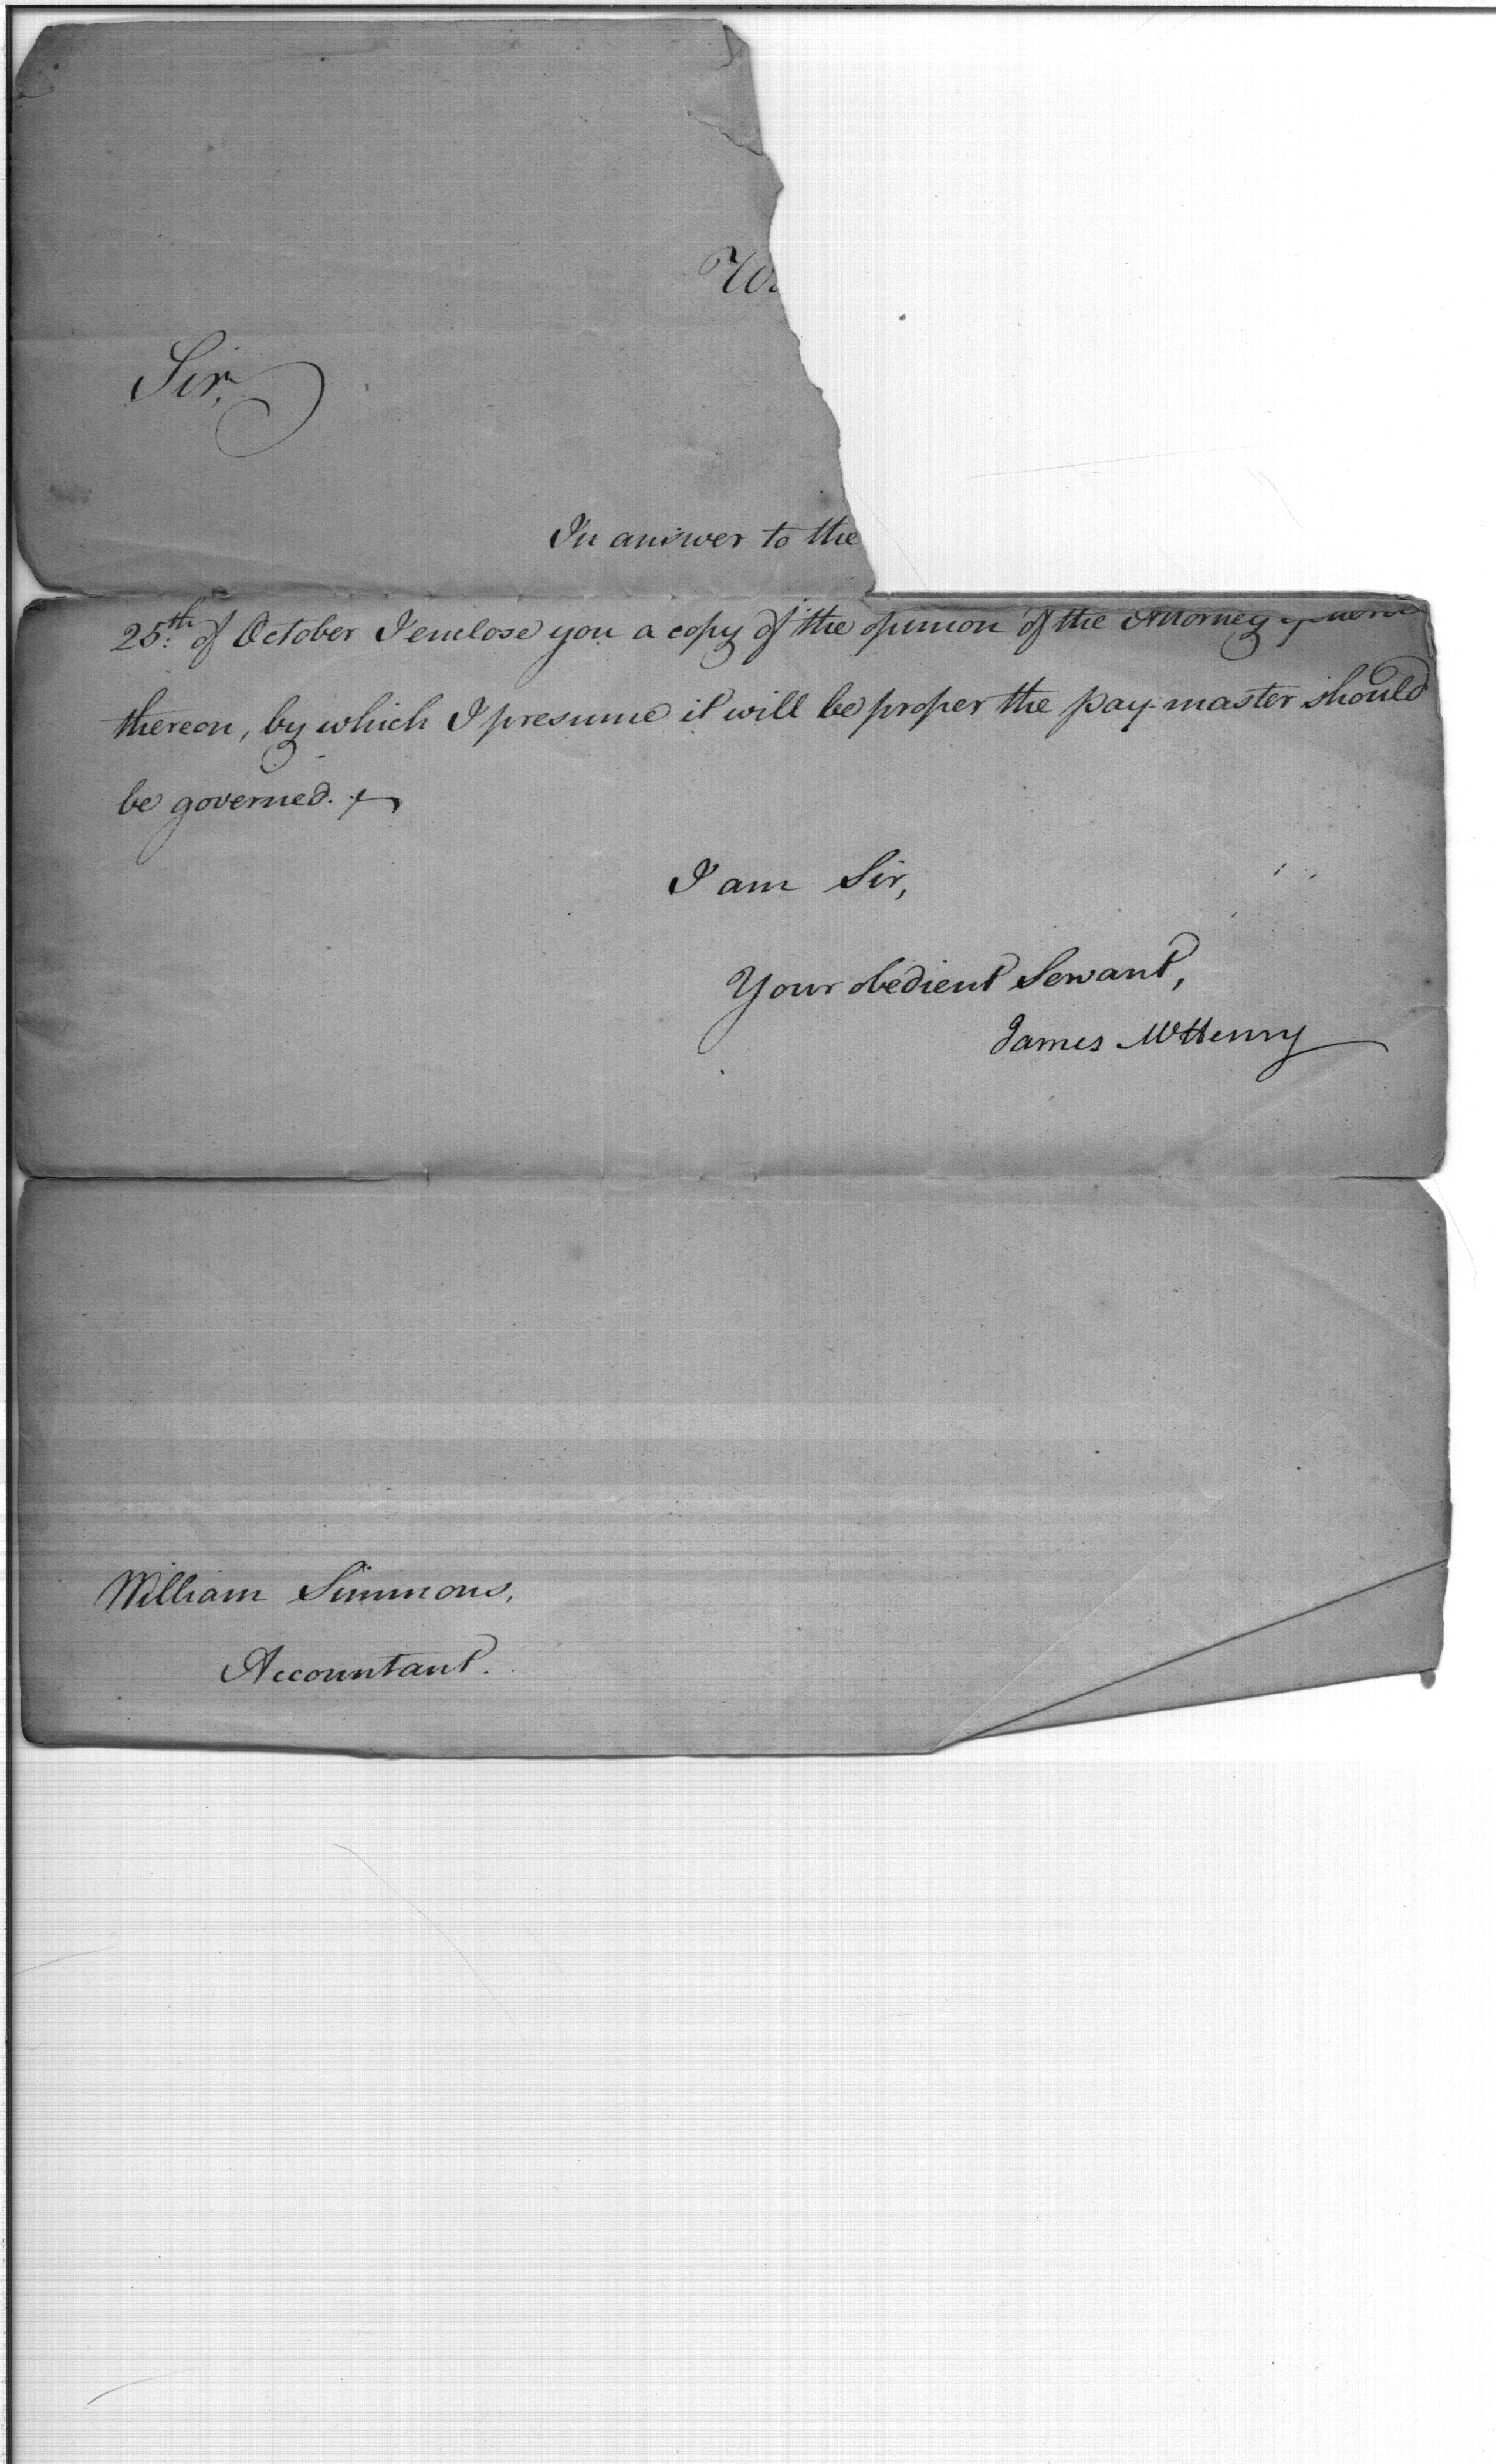 Sir,
In answer to the
25th of October I enclose you a copy of the opinion of the Attorney general
thereon, by which I presume it will be proper the pay-master should
be governed.
I am Sir,
Your obedient Servant,
James McHenry
William Simmons,
Accountant.